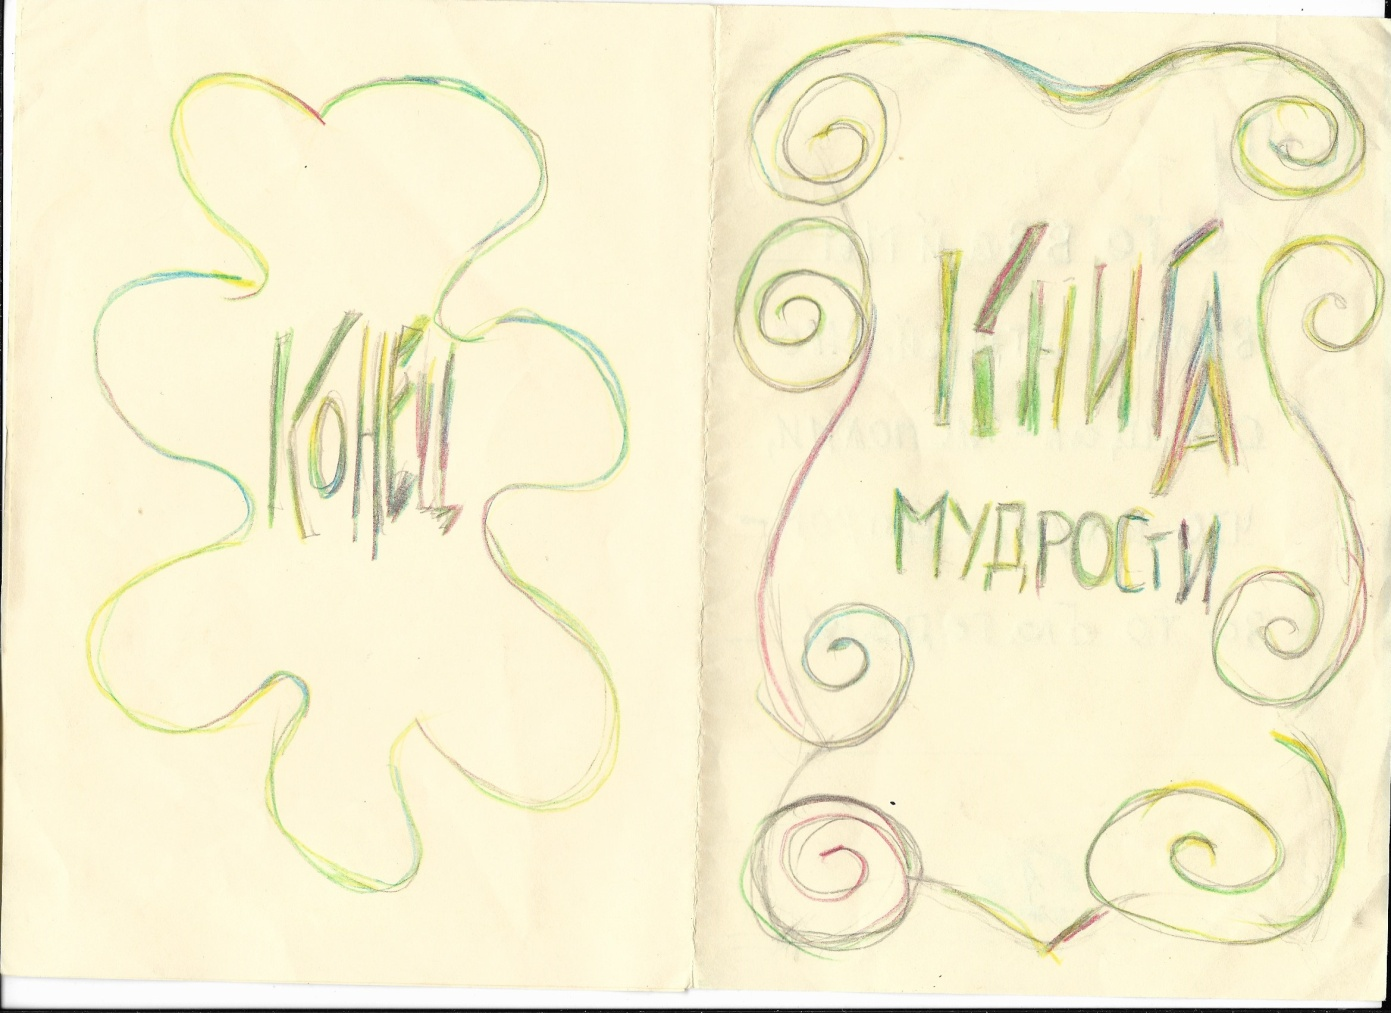 Конец
КНИГА
мудрости